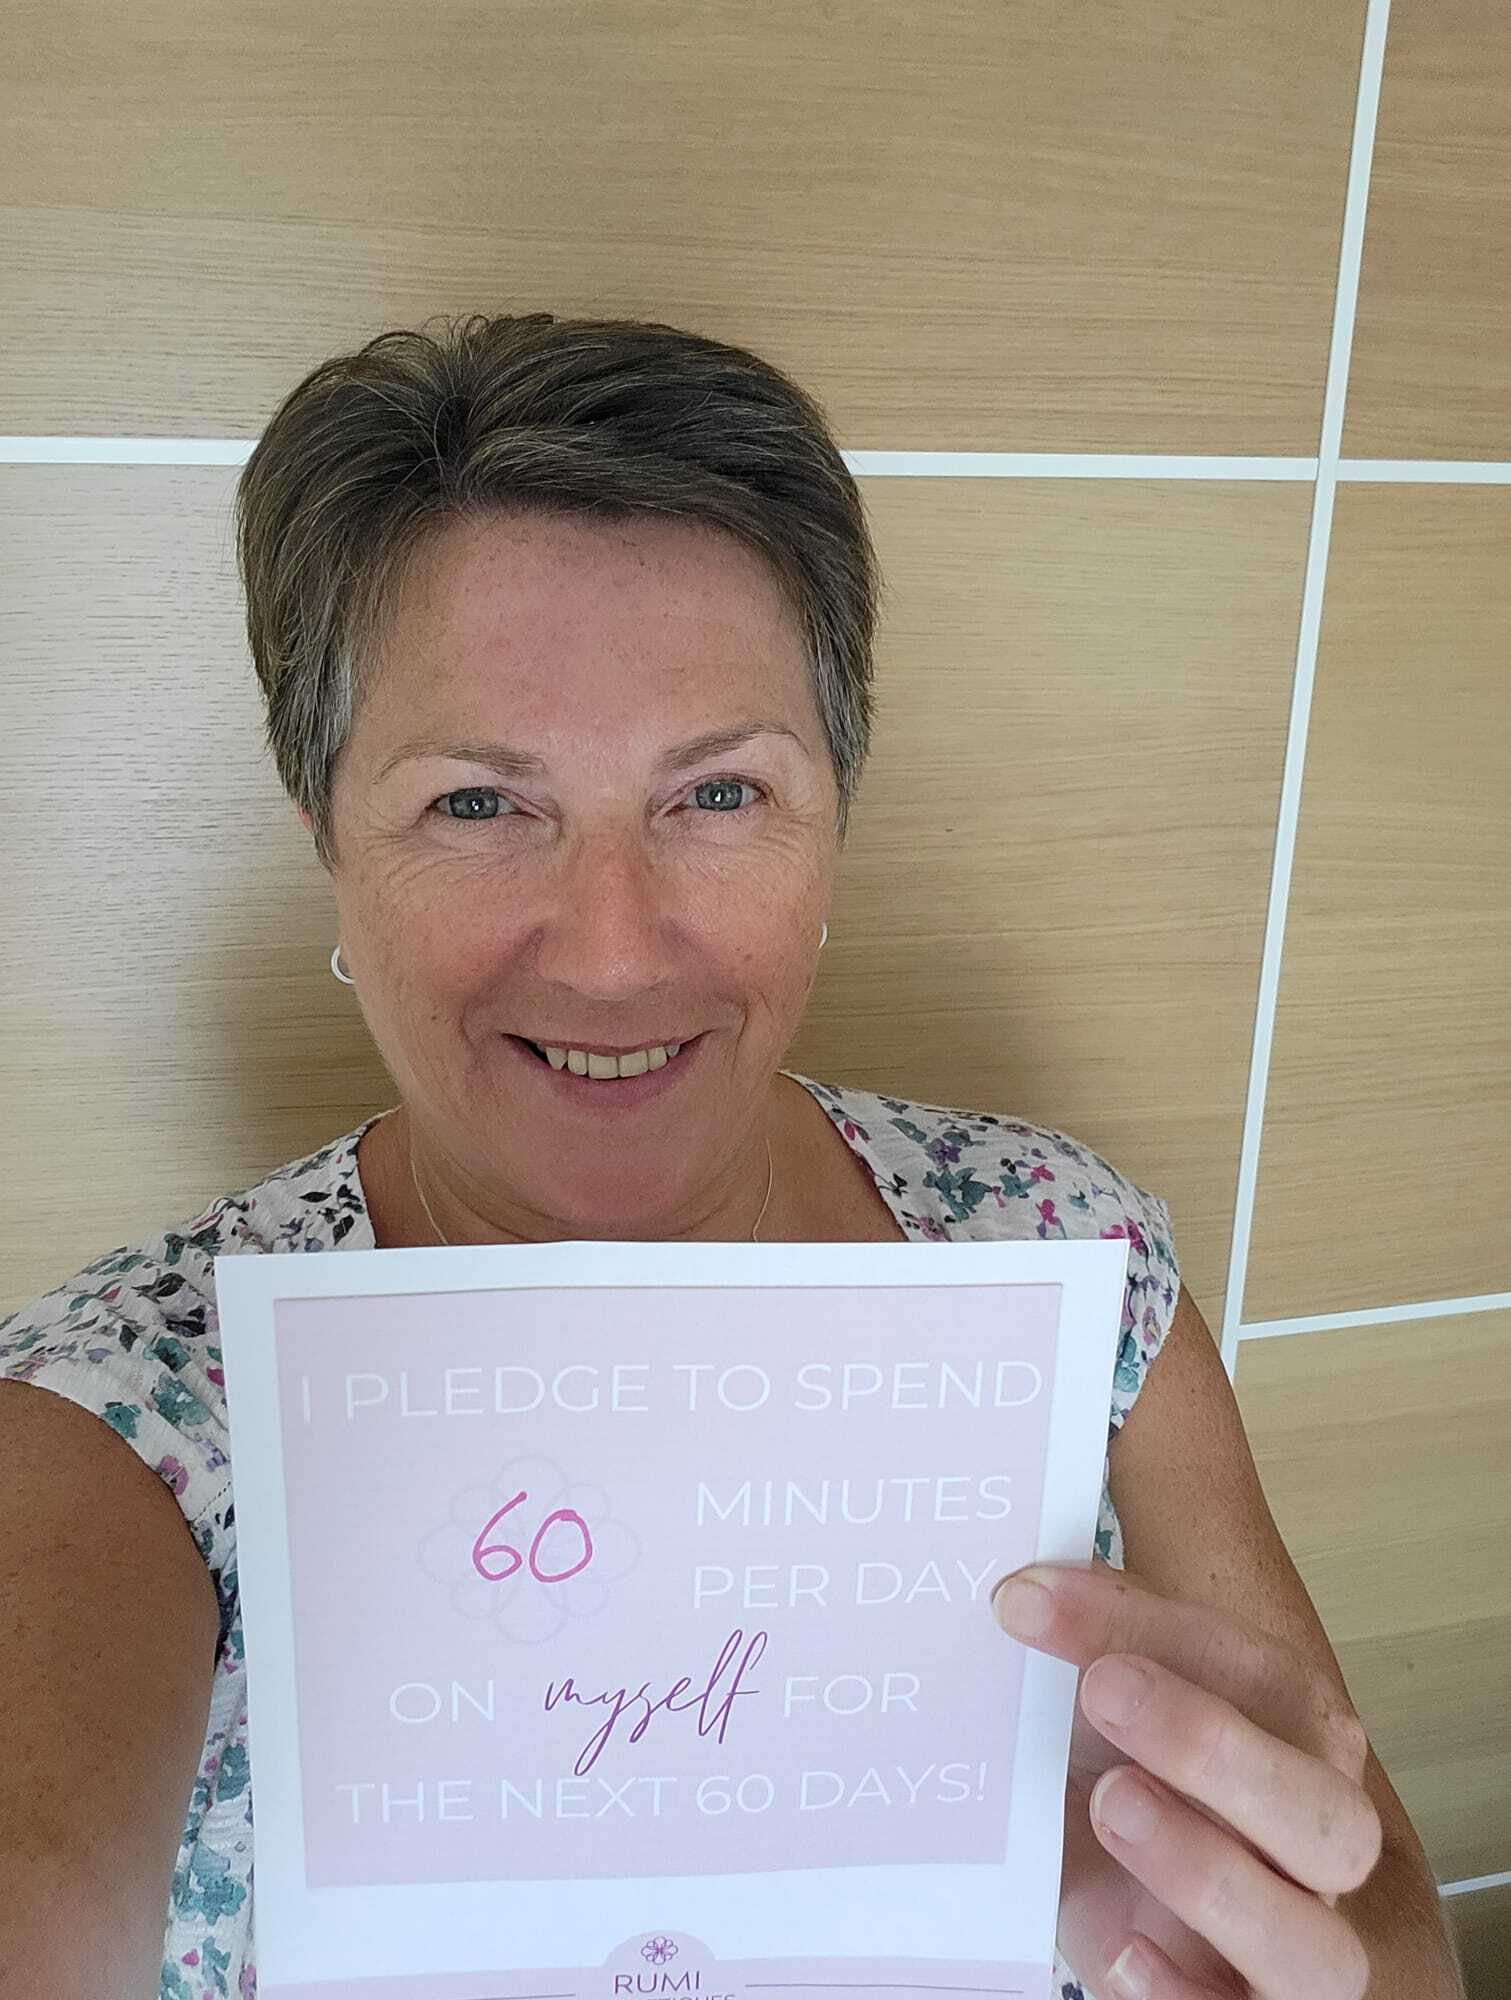 I PLEDGE TO SPEND
60 MINUTES
PER DAY
ON myself FOR
THE NEXT 60 DAYS!
RUMI